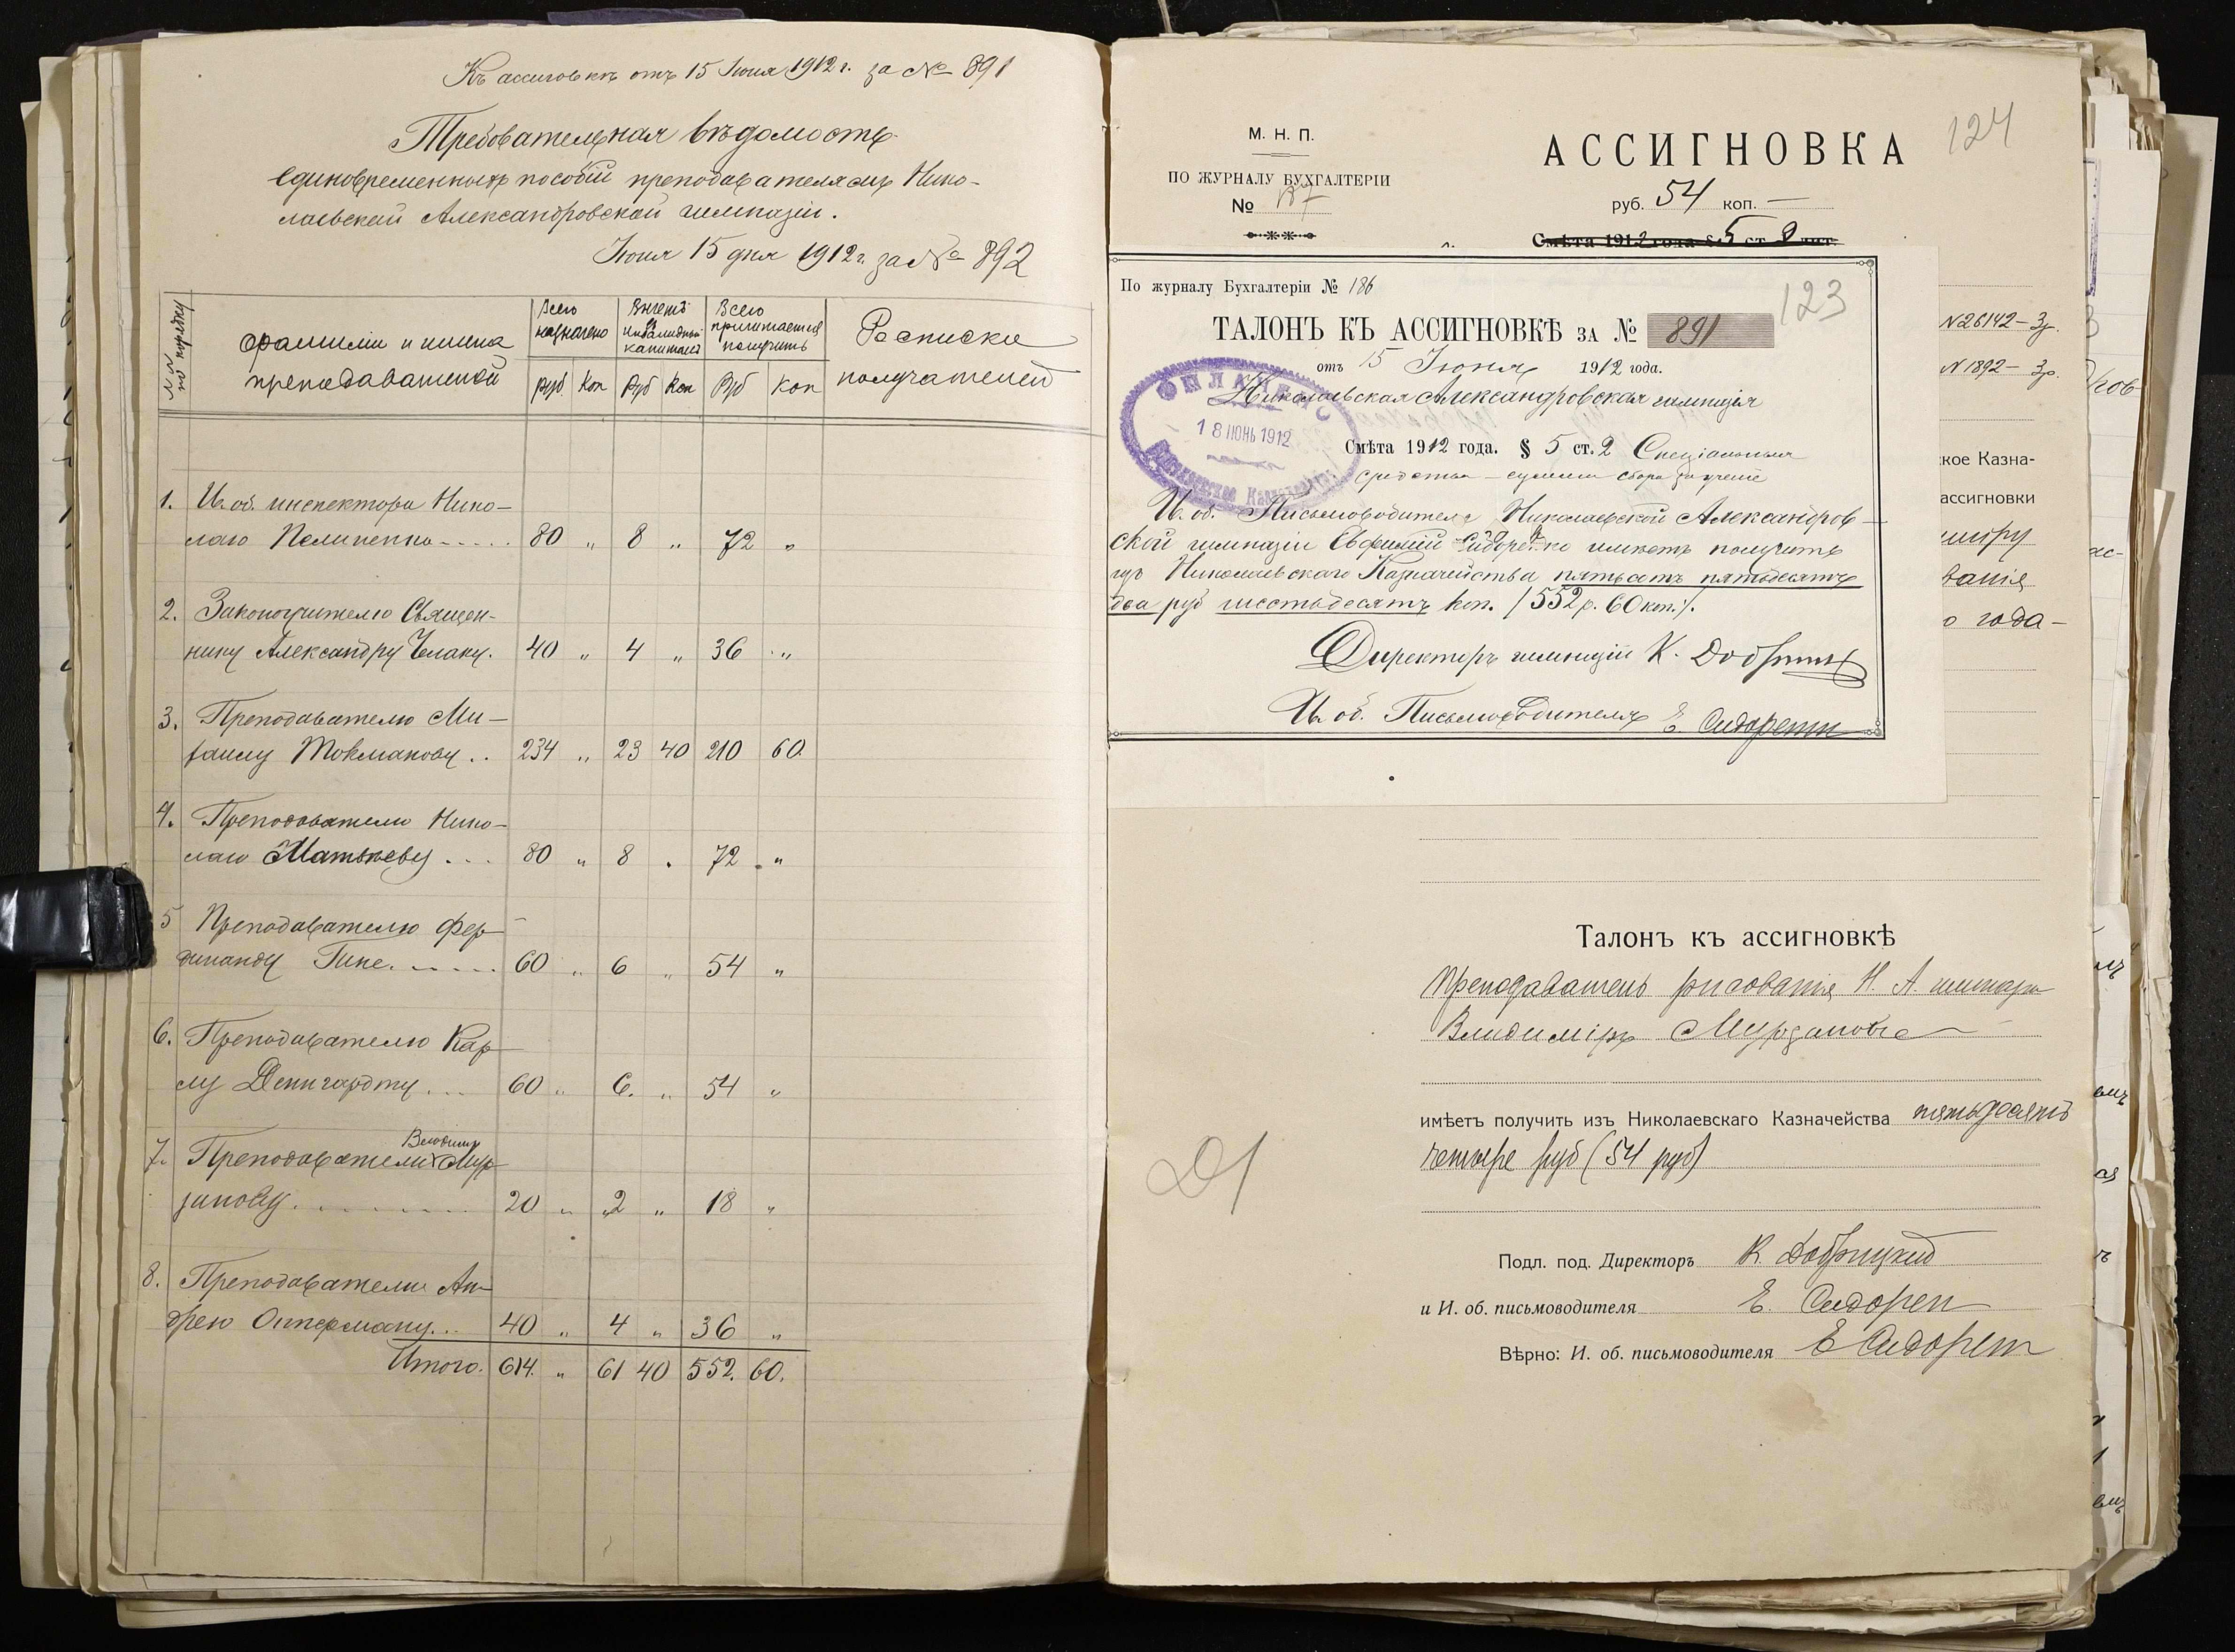 Къ ассигновкѣ отъ 15 Іюня 1912 г. за № 891
Требовательная вѣдомость
единовременныхъ пособій преподавателямъ Нико-
лаевской Александровской гимназіи.
Іюня 15 дня 1912 г. за № 892
№№ по порядку
Фамиліи и имена преподавателей
Всего назначено
Вычетъ въ инвалидный капиталъ
Всего причитается получить
Росписки получателей
Руб. Коп Руб Коп Руб Коп
1. И. об. инспектора Нико-
лаю Пелипенко 80 „ 8 „ 72 „
2. Законоучителю Священ-
нику Александру Челаку. 40 „ 4 „ 36 „
3. Преподавателю Ми-
хаилу Товмакову . . 234 „ 23 40 210 60.
4. Преподавателю Нико-
лаю Матвѣеву . . . 80 „ 8 „ 72 „
5 Преподавателю Фер-
динанду Гине. 60 „ 6 „ 54 „
6. Преподавателю Кар-
лу Денгардту . . . 60 „ 6. „ 54 „
7. Преподавателю Владимиру Мур-
занову. 20 „ 2 „ 18 „
8. Преподавателю Ан-
дрею Опперману. . . 40 „ 4 „ 36 „
Итого. 614. „ 61 40 552. 60.
М. Н. П.
ПО ЖУРНАЛУ БУХГАЛТЕРІИ
№ 187
АССИГНОВКА
124
руб. 54 коп. —
Смѣта 1912 года § 5 ст 2 лит.
По журналу Бухгалтеріи № 186
123
ТАЛОНЪ КЪ АССИГНОВКѢ ЗА № 891
отъ 15 Іюня 1912 года.
Николаевская Александровская гимназія
ОПЛАЧЕНО
18 ІЮНЬ 1912
Смѣта 1912 года. § 5 ст. 2 Спеціальныя
средства – суммы сбора за ученіе
И. об. Письмоводителя Николаевской Александров-
ской гимназіи Евфимій Сидоренко имѣетъ получить
изъ Николаевскаго Казначейства пятьсотъ пятьдесятъ
два руб шестьдесятъ коп. /552 р. 60 коп./.
Директоръ гимназіи К. Добрицкій
И. об. Письмоводителя Е. Сидоренко
N 26142 – 3р.
N 1892 – 3р.
ское Казна-
ассигновки
ванія
о года –
Талонъ къ ассигновкѣ
Преподаватель рисованія Н. А. гимназіи
Владиміръ Мурзановъ
имѣетъ получить изъ Николаевскаго Казначейства пятьдесятъ
четыре руб (54 руб)
Подл. под. Директоръ К. Добрицкій
и И. об. письмоводителя Е. Сидорен
Вѣрно: И. об. письмоводителя Е Сидорен